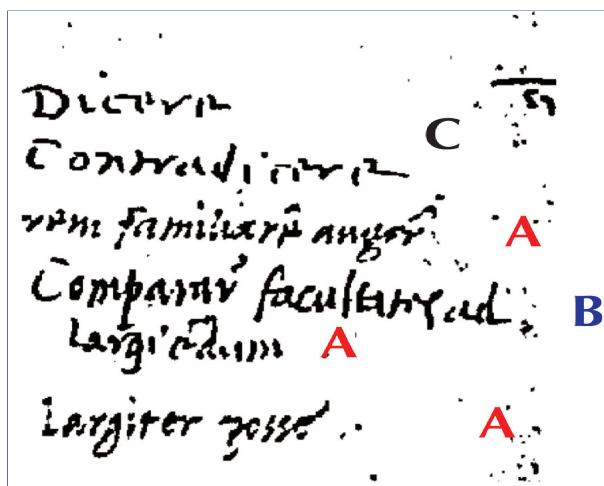 Dicere
C
Contradicere
rem familiarē auger̄ A
Comparar̄ facultates ad B
largiēdum A
Largiter posse A